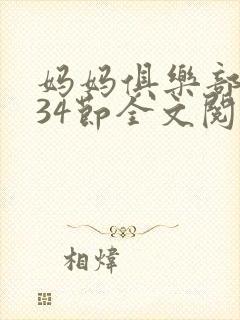 妈妈俱樂部
34節全文閱
相煒